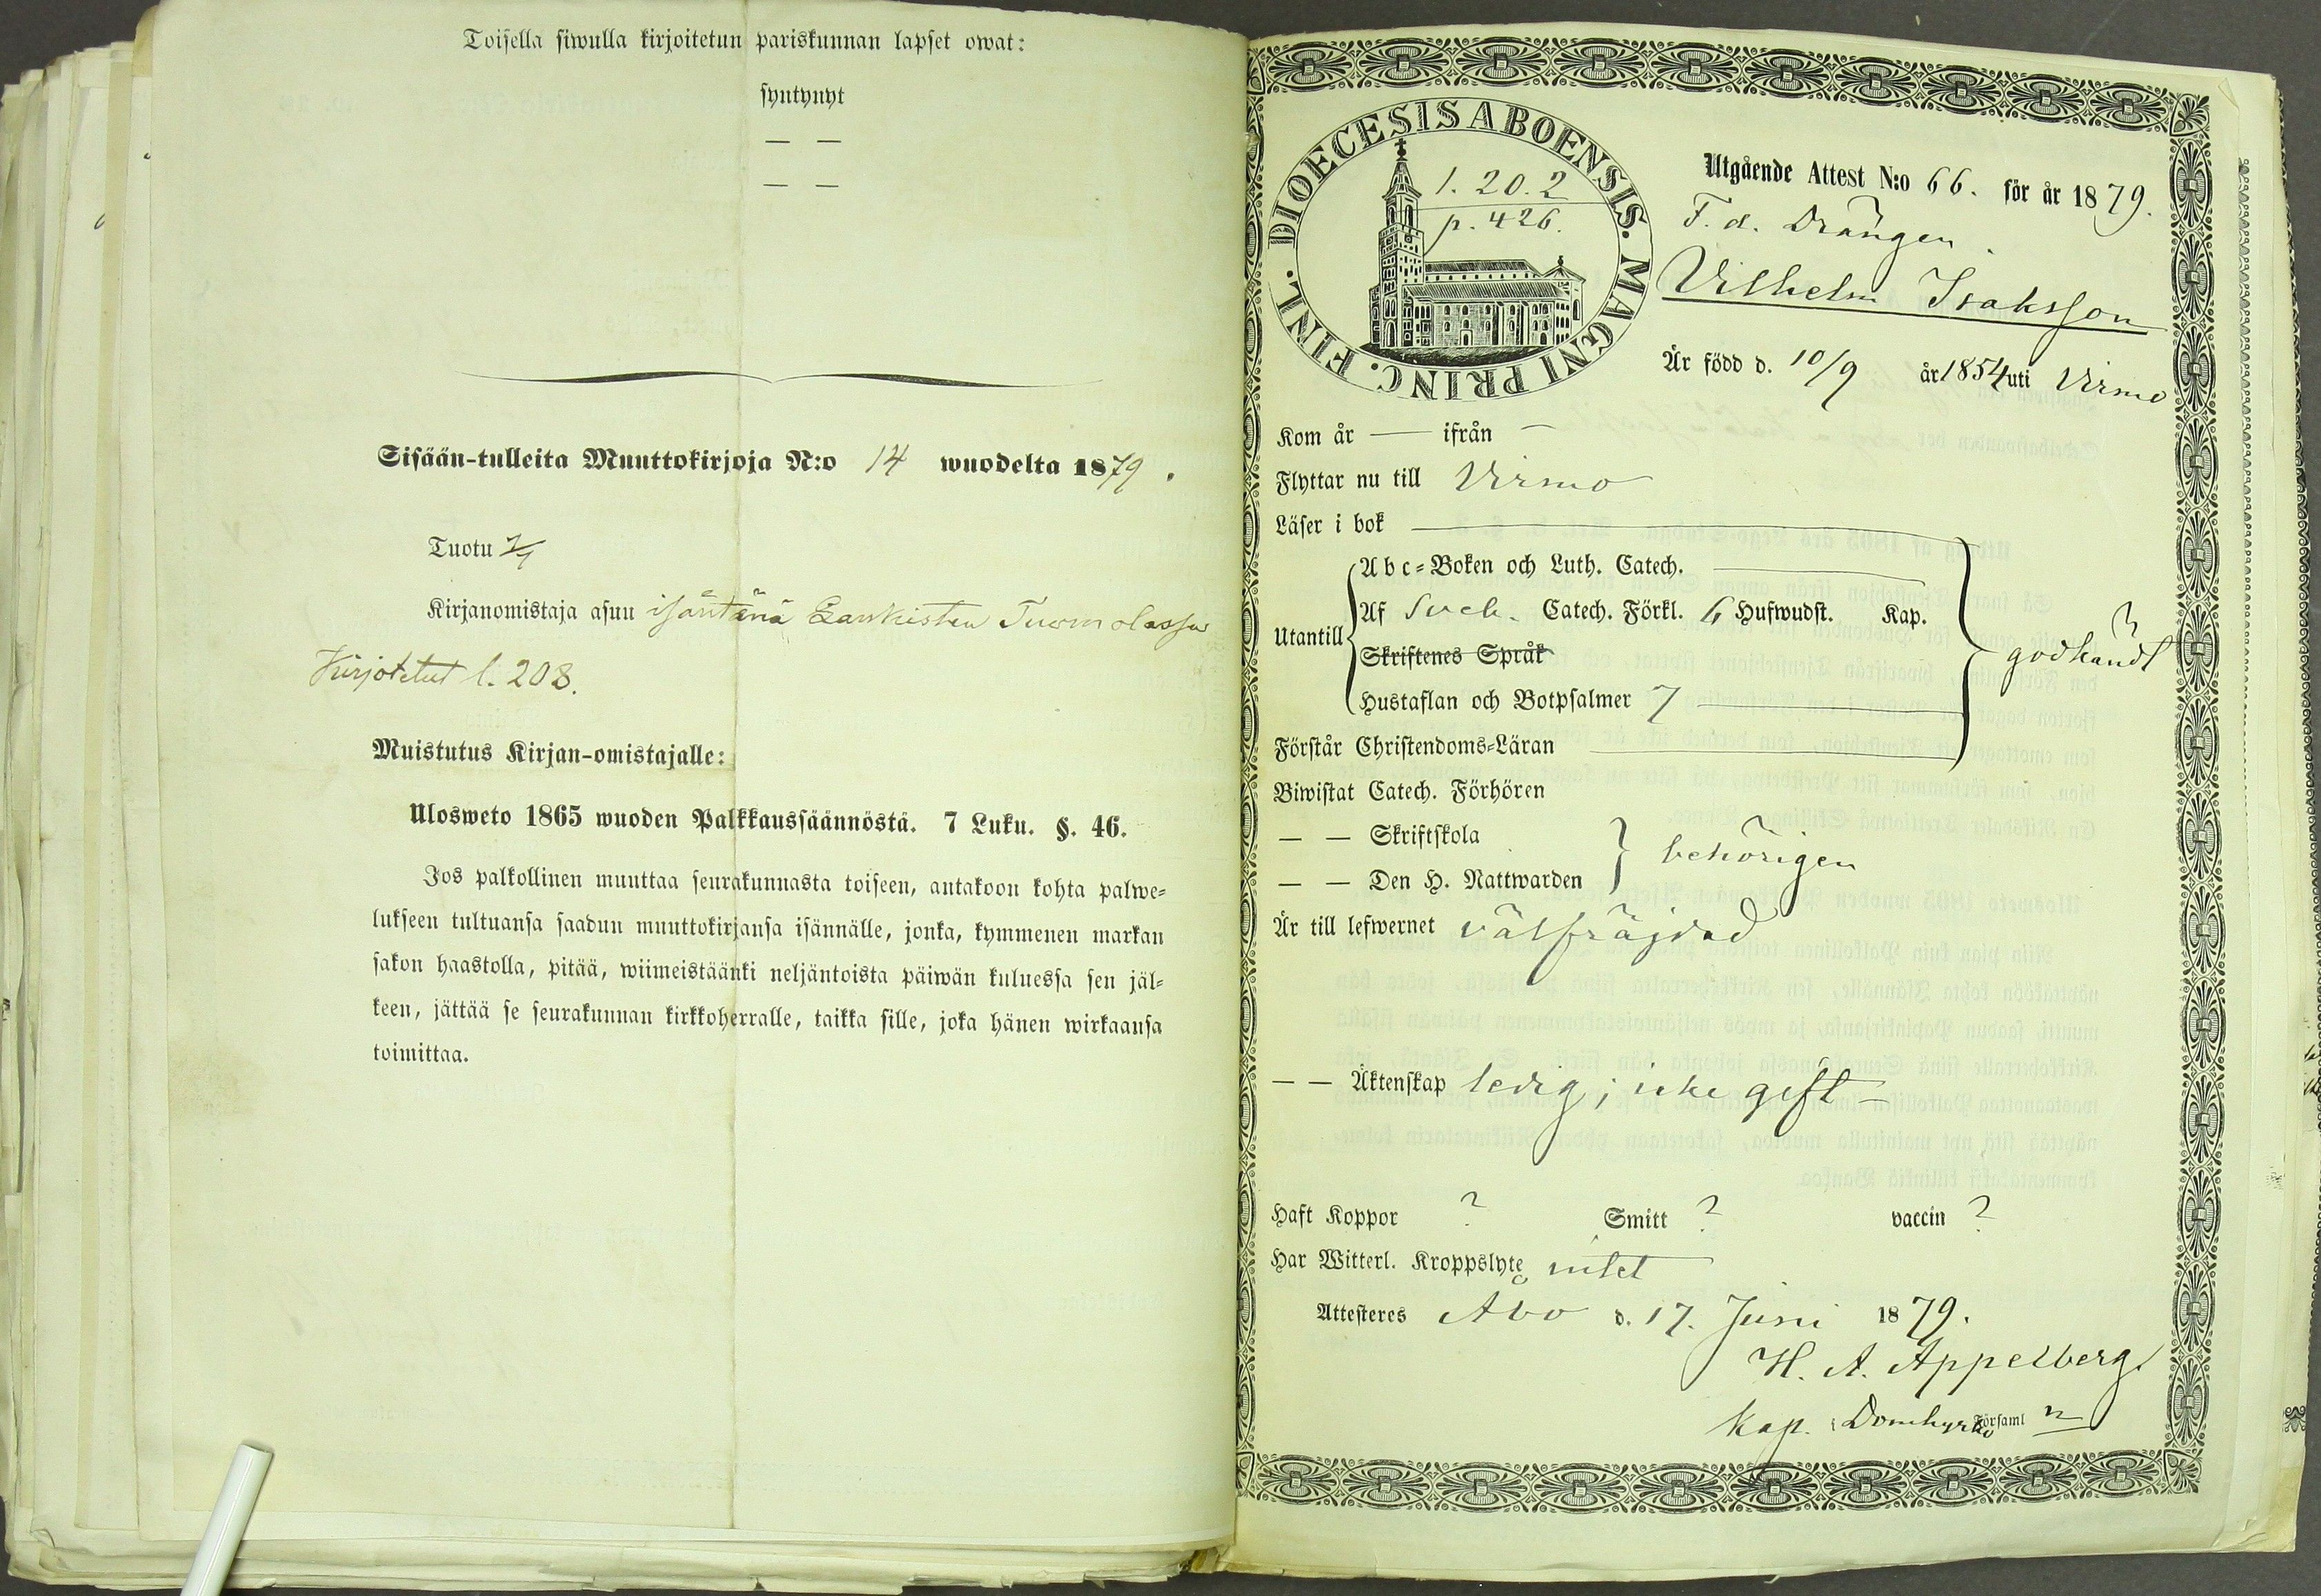 Toisella siwulla kirjoitetun pariskunnan lapset owat:
syntynyt
— —
— —
Sisään-tulleita Muuttokirjoja N:o 14 wuodelta 1879.
Tuotu
Kirjanomistaja asuu isäntänä Tuomolassa
Kirjotetut l. 208.
Muistutus Kirjan-omistajalle:
Ulosweto 1865 wuoden Palkkaussäännöstä. 7 Luku. §. 46.
Jos palkollinen muuttaa seurakunnasta toiseen, antakoon kohta palwe-
lukseen tultuansa saadun muuttokirjansa isännälle, jonka, kymmenen markan
sakon haastolla, pitää, wiimeistäänki neljäntoista päiwän kuluessa sen jäl-
keen, jättää se seurakunnan kirkkoherralle, taikka sille, joka hänen wirkaansa
toimittaa.
DIOECESIS ABOENSIS. MAGNI PRINC. FINL.
1. 20. 2
p. 426.
Utgående Attest N:o 66. för år 1879.
F. d. Drängen
Vilhelm Isaksson
Är född d. 10/9 år 1854 uti Virmo
Kom år — ifrån —
Flyttar nu till Virmo
Läser i bok
Utantill
Abc-Boken och Luth. Catech.
Af Sveb. Catech. Förkl. 6 Hufwudst. Kap.
Skriftenes Språk
Hustaflan och Botpsalmer 7
godkändt
Förstår Christendoms-Läran
Biwistat Catech. Förhören
— — Skriftskola
— — Den H. Nattwarden
behörigen
Är till lefwernet välfräjdad
— — Äktenskap ledig; icke gift —
Haft Koppor ? Smitt ? vaccin ?
Har Witterl. Kroppslyte intet
Attesteres Åbo d. 17. Juni 1879.
H. A. Appelberg
Kap. i Domkyrko Församl n